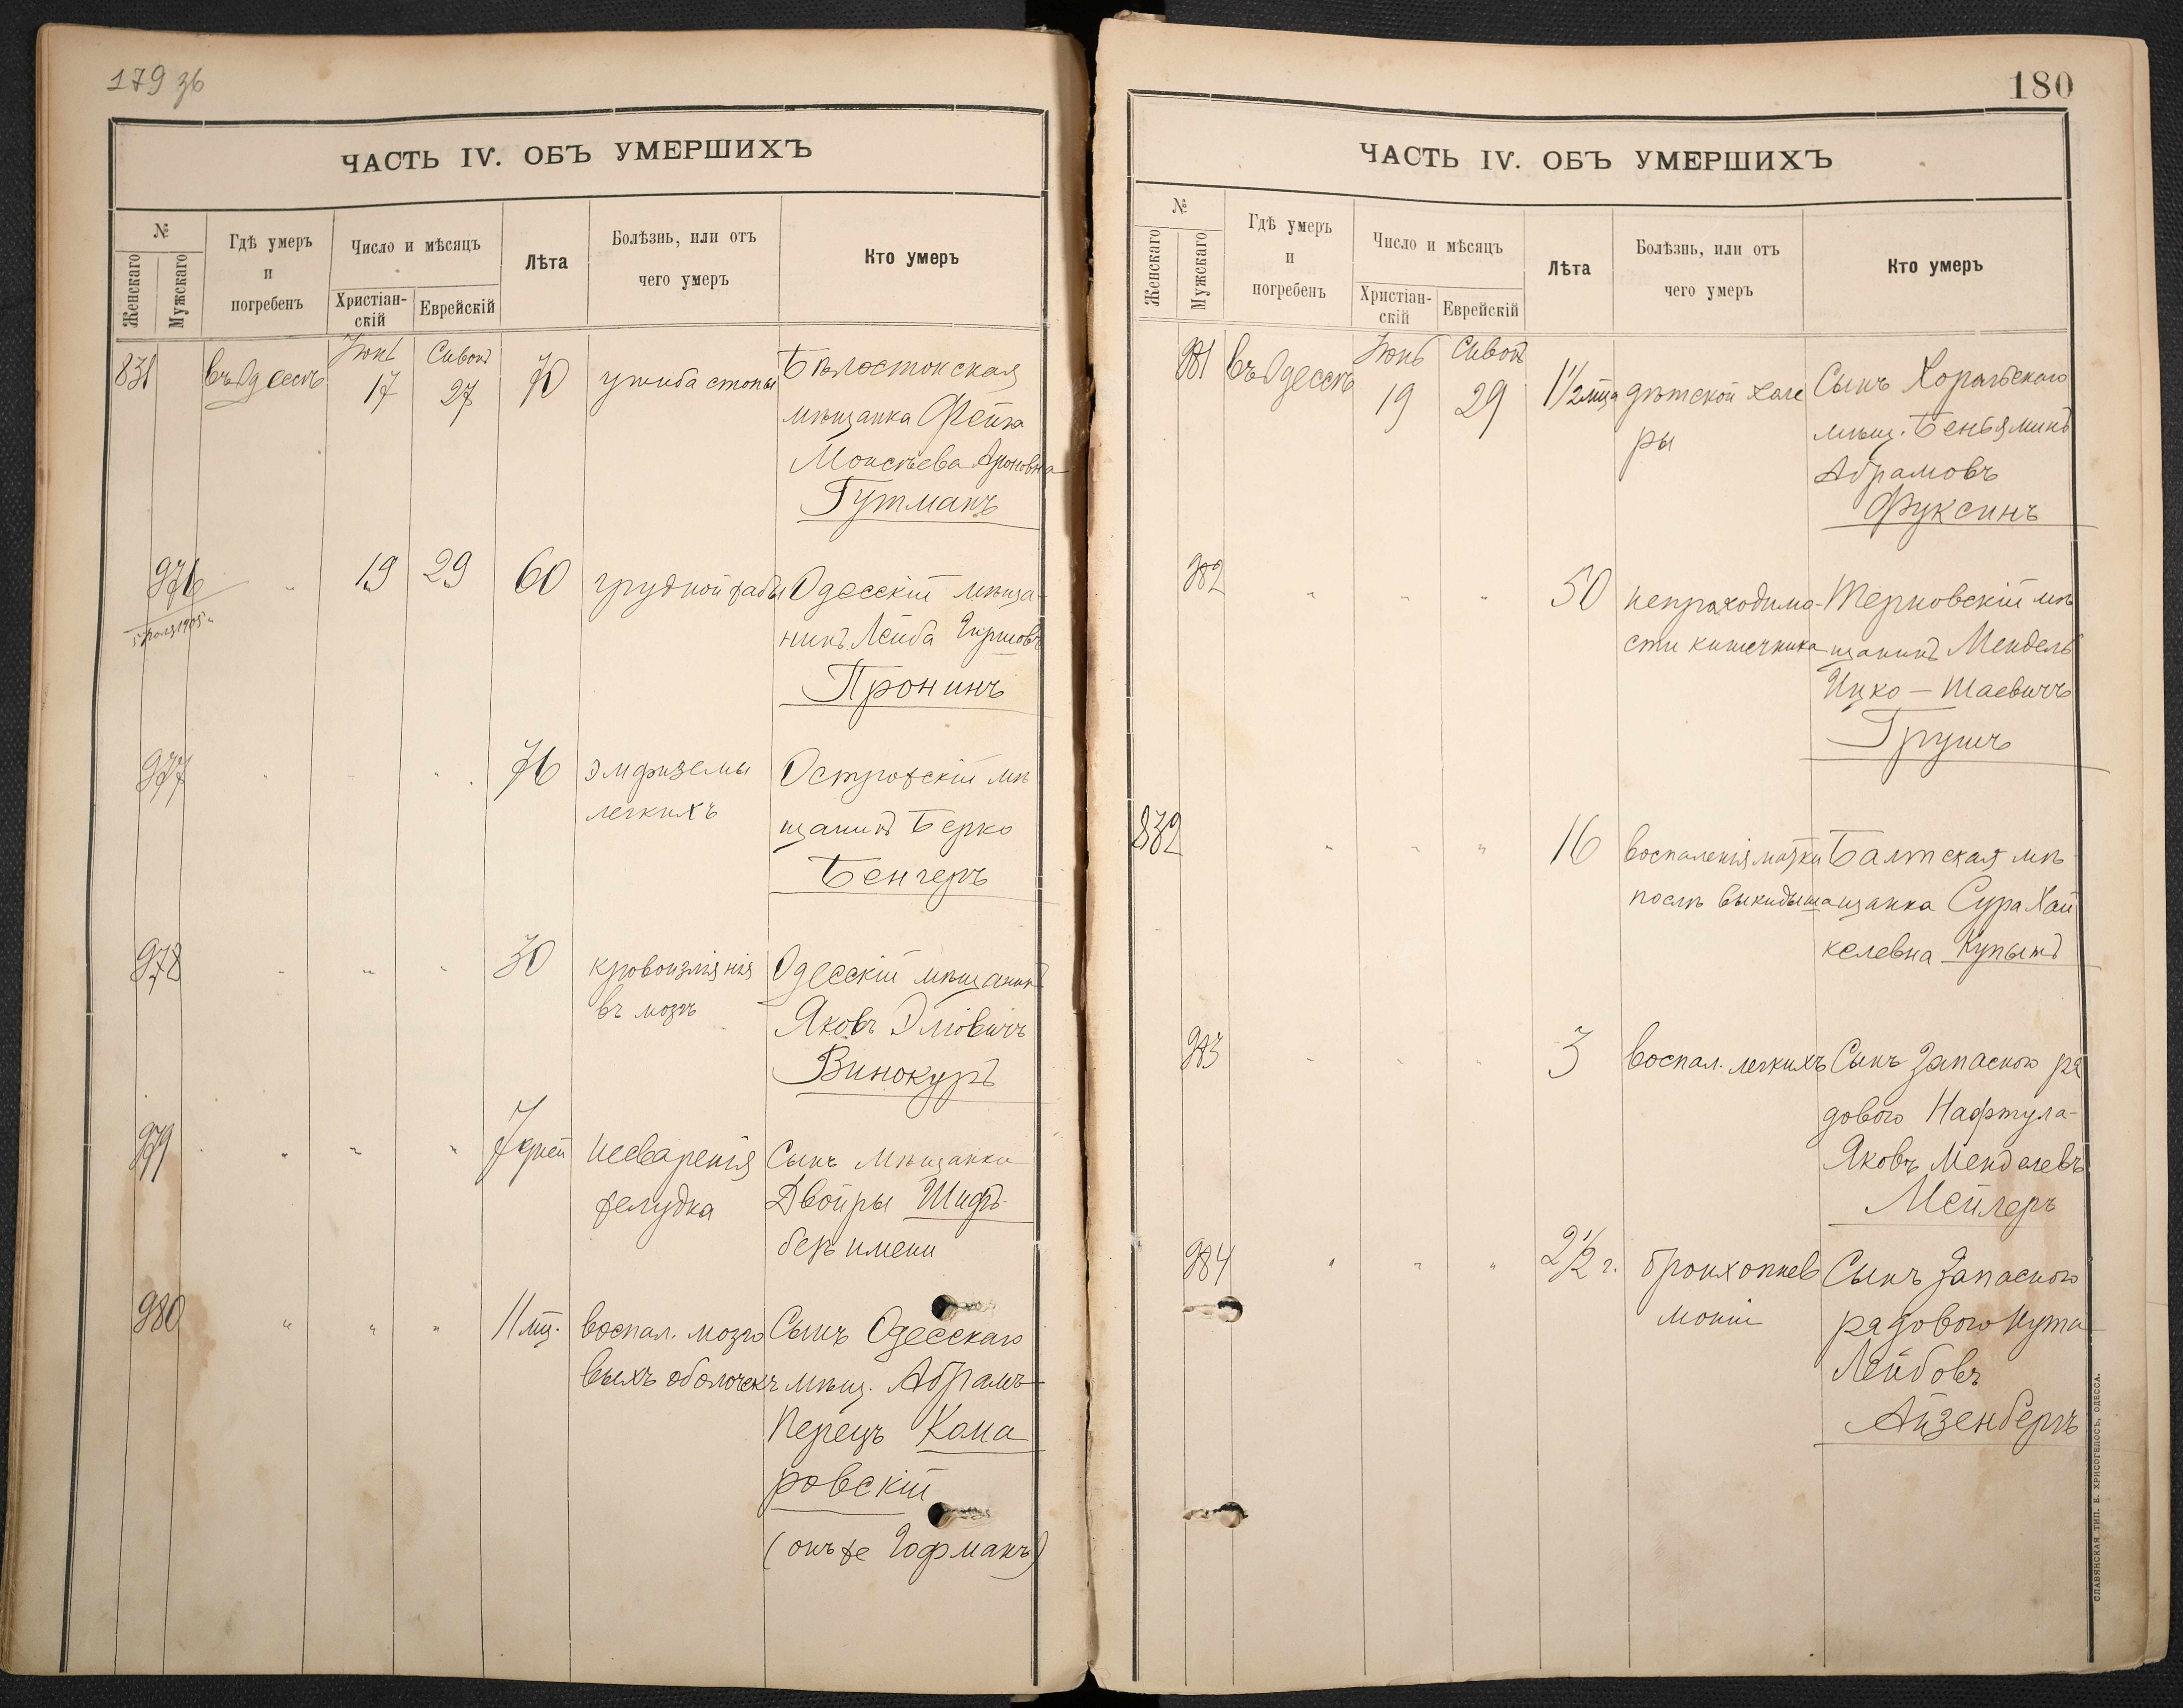 179 зв
ЧАСТЬ IV. ОБЪ УМЕРШИХЪ
№
Женскаго
Мужскаго
Гдѣ умеръ
и
погребенъ
Число и мѣсяцъ
Христіан-
скій
Еврейскій
Лѣта
Болѣзнь, или отъ
чего умеръ
Кто умеръ
831 въ Одессѣ Іюнь 17 Сивонъ 27 70 ушиба стопы Бѣлостокская
мѣщанка Фейга
Моисѣева Ароновна
Гутманъ
976 " 19 29 60 грудной жабы Одесскій мѣща-
нинъ Лейба Гиршовъ
Пронинъ
977 " " " 76 эмфиземы Островскій мѣ
легкихъ щанинъ Берко
Бенгеръ
978 " " " 30 кровоизліянія Одесскій мѣщанинъ
въ мозгъ Яковъ Эліовичъ
Винокуръ
979 " " " 7 дней несваренія Сынъ мѣщанки
желудка Двойры Шифъ-
безъ имени
980 " " " 11 мц. воспал. мозго Сынъ Одесскаго
выхъ оболочекъ мѣщ. Абрамъ
Перецъ Кома
ровскій
(онъ же Гофманъ)
180
ЧАСТЬ IV. ОБЪ УМЕРШИХЪ
№
Женскаго
Мужскаго
Гдѣ умеръ
и
погребенъ
Число и мѣсяцъ
Христіан-
скій
Еврейскій
Лѣта
Болѣзнь, или отъ
чего умеръ
Кто умеръ
981 въ Одессѣ Іюнь 19 Сивонъ 29 1 1/2 мца дѣтской холе Сынъ Хорольскаго
ры мѣщ. Беньяминъ
Абрамовъ
Фуксинъ
982 " " " 50 непроходимо- Терновскій мѣ
сти кишечника щанинъ Мендель
Ицко - Шаевичъ
Грушъ
832 " " " 16 воспаленія матки Балтская мѣ
послѣ выкидыша щанка Сура Хай
келевна Купытъ
983 " " " 3 воспал. легкихъ Сынъ запасного ря
дового Нафтула-
Яковъ Менделевъ
Мейлеръ
984 " " " 2 1/2 г. бронхопнев Сынъ запасного
моніи рядового Нута
Лейбовъ
Айзенбергъ
СЛАВЯНСКАЯ ТИП. Е. ХРИСОГЕЛОСЪ, ОДЕССА.